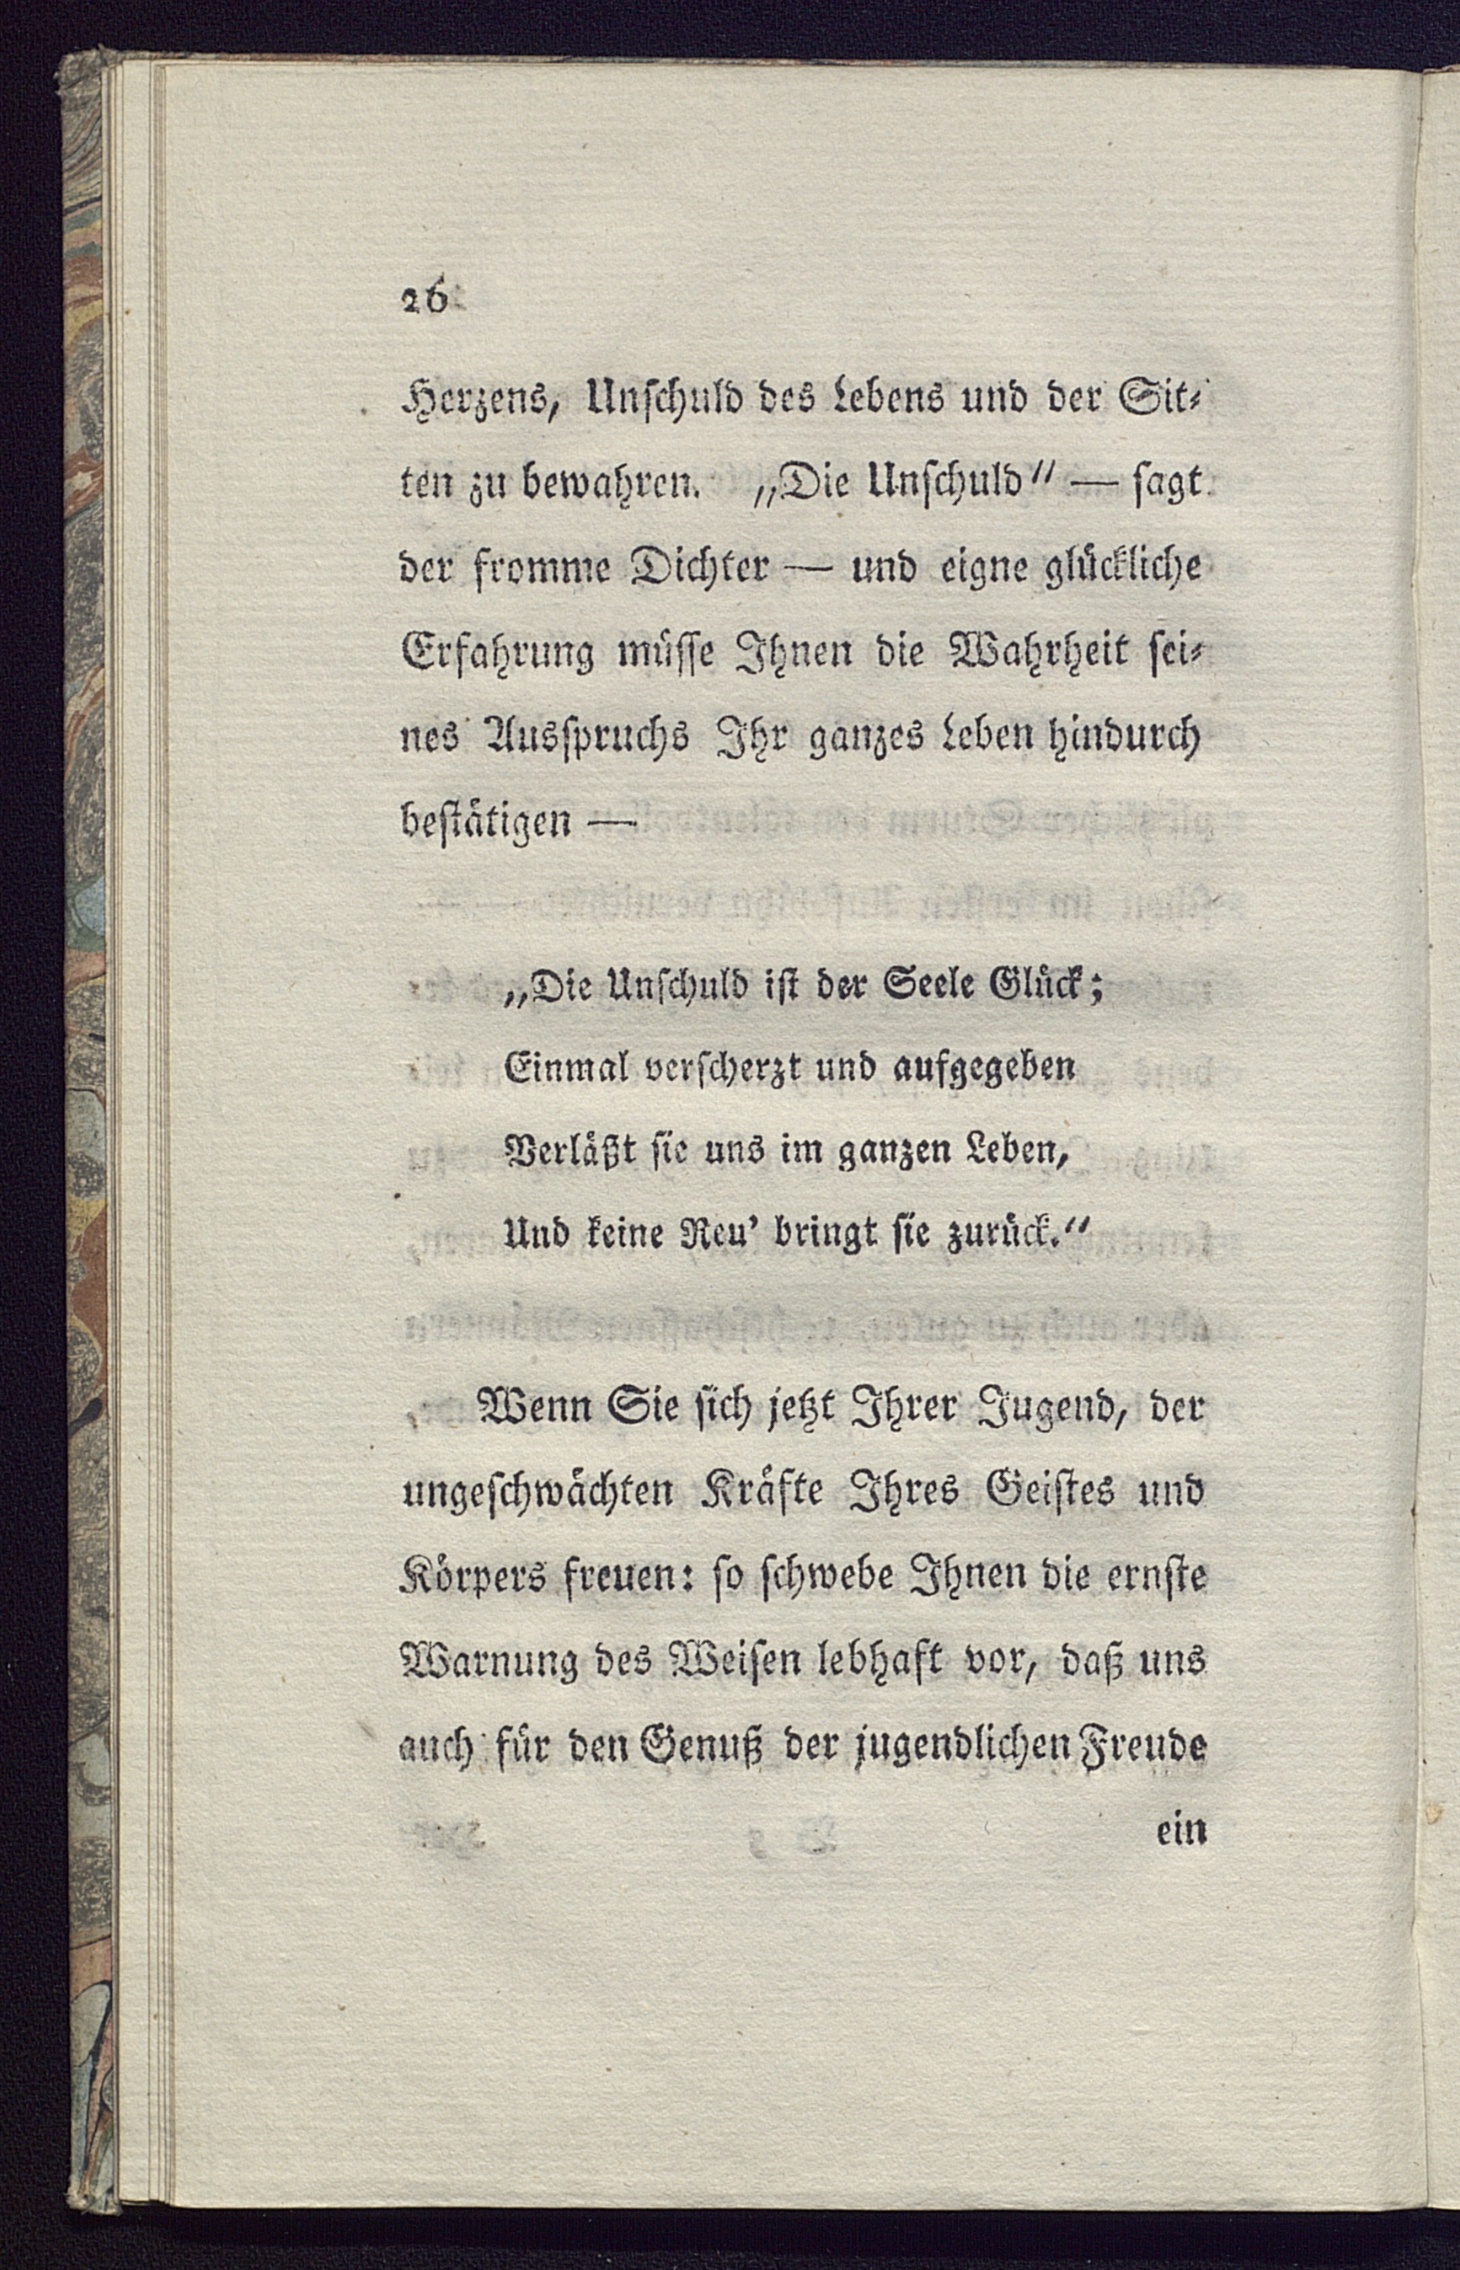 26
Herzens, Unschuld des Lebens und der Sit⸗
ten zu bewahren. „Die Unschuld“ — sagt
der fromme Dichter — und eigne glückliche
Erfahrung müsse Ihnen die Wahrheit sei⸗
nes Ausspruchs Ihr ganzes Leben hindurch
bestätigen —
„Die Unschuld ist der Seele Glück;
Einmal verscherzt und aufgegeben
Verläßt sie uns im ganzen Leben,
Und keine Reu' bringt sie zurück.“
Wenn Sie sich jetzt Ihrer Jugend, der
ungeschwächten Kräfte Ihres Geistes und
Körpers freuen: so schwebe Ihnen die ernste
Warnung des Weisen lebhaft vor, daß uns
auch für den Genuß der jugendlichen Freude
ein